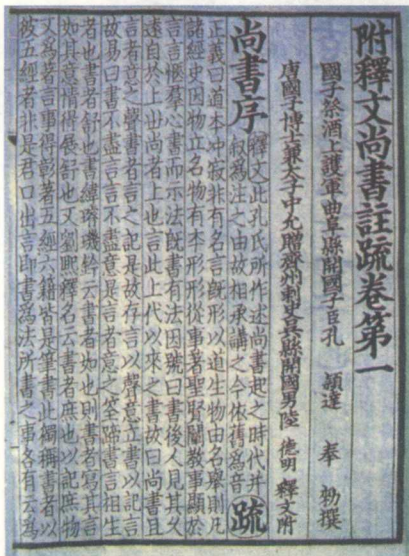 附釋文尚書註疏卷第一
國子祭酒上護軍曲阜縣開國子臣孔 穎達 奉 勑撰
唐國子博士兼太子中允贈齊州刺史吳縣開國男陸 德明 釋文附
尚書序 釋文此孔氏所作述尚書起之時代并
叙爲注之由故相承講之今依舊爲音 疏
正義曰道本冲寂非有名言既形以道生物由名舉則凡
諸經史因物立名物有本形形從事著聖賢闡教事顯於
言言愜羣心書而示法既書有法因號曰書後人見其久
遠自於上世尚者上也言此上代以來之書故曰尚書且
言者意之聲書者言之記是故存言以聲意立書以記言
故易曰書不盡言言不盡意是言者意之筌蹄書言相生
者也書者舒也書緯璿璣鈐云書者如也則書者寫其言
如其意情得展舒也又劉熙釋名云書者庶也以記庶物
又爲著言事得彰著五經六籍皆是筆書此獨稱書者以
彼五經者非是君口出言即書爲法所書之事各有云爲